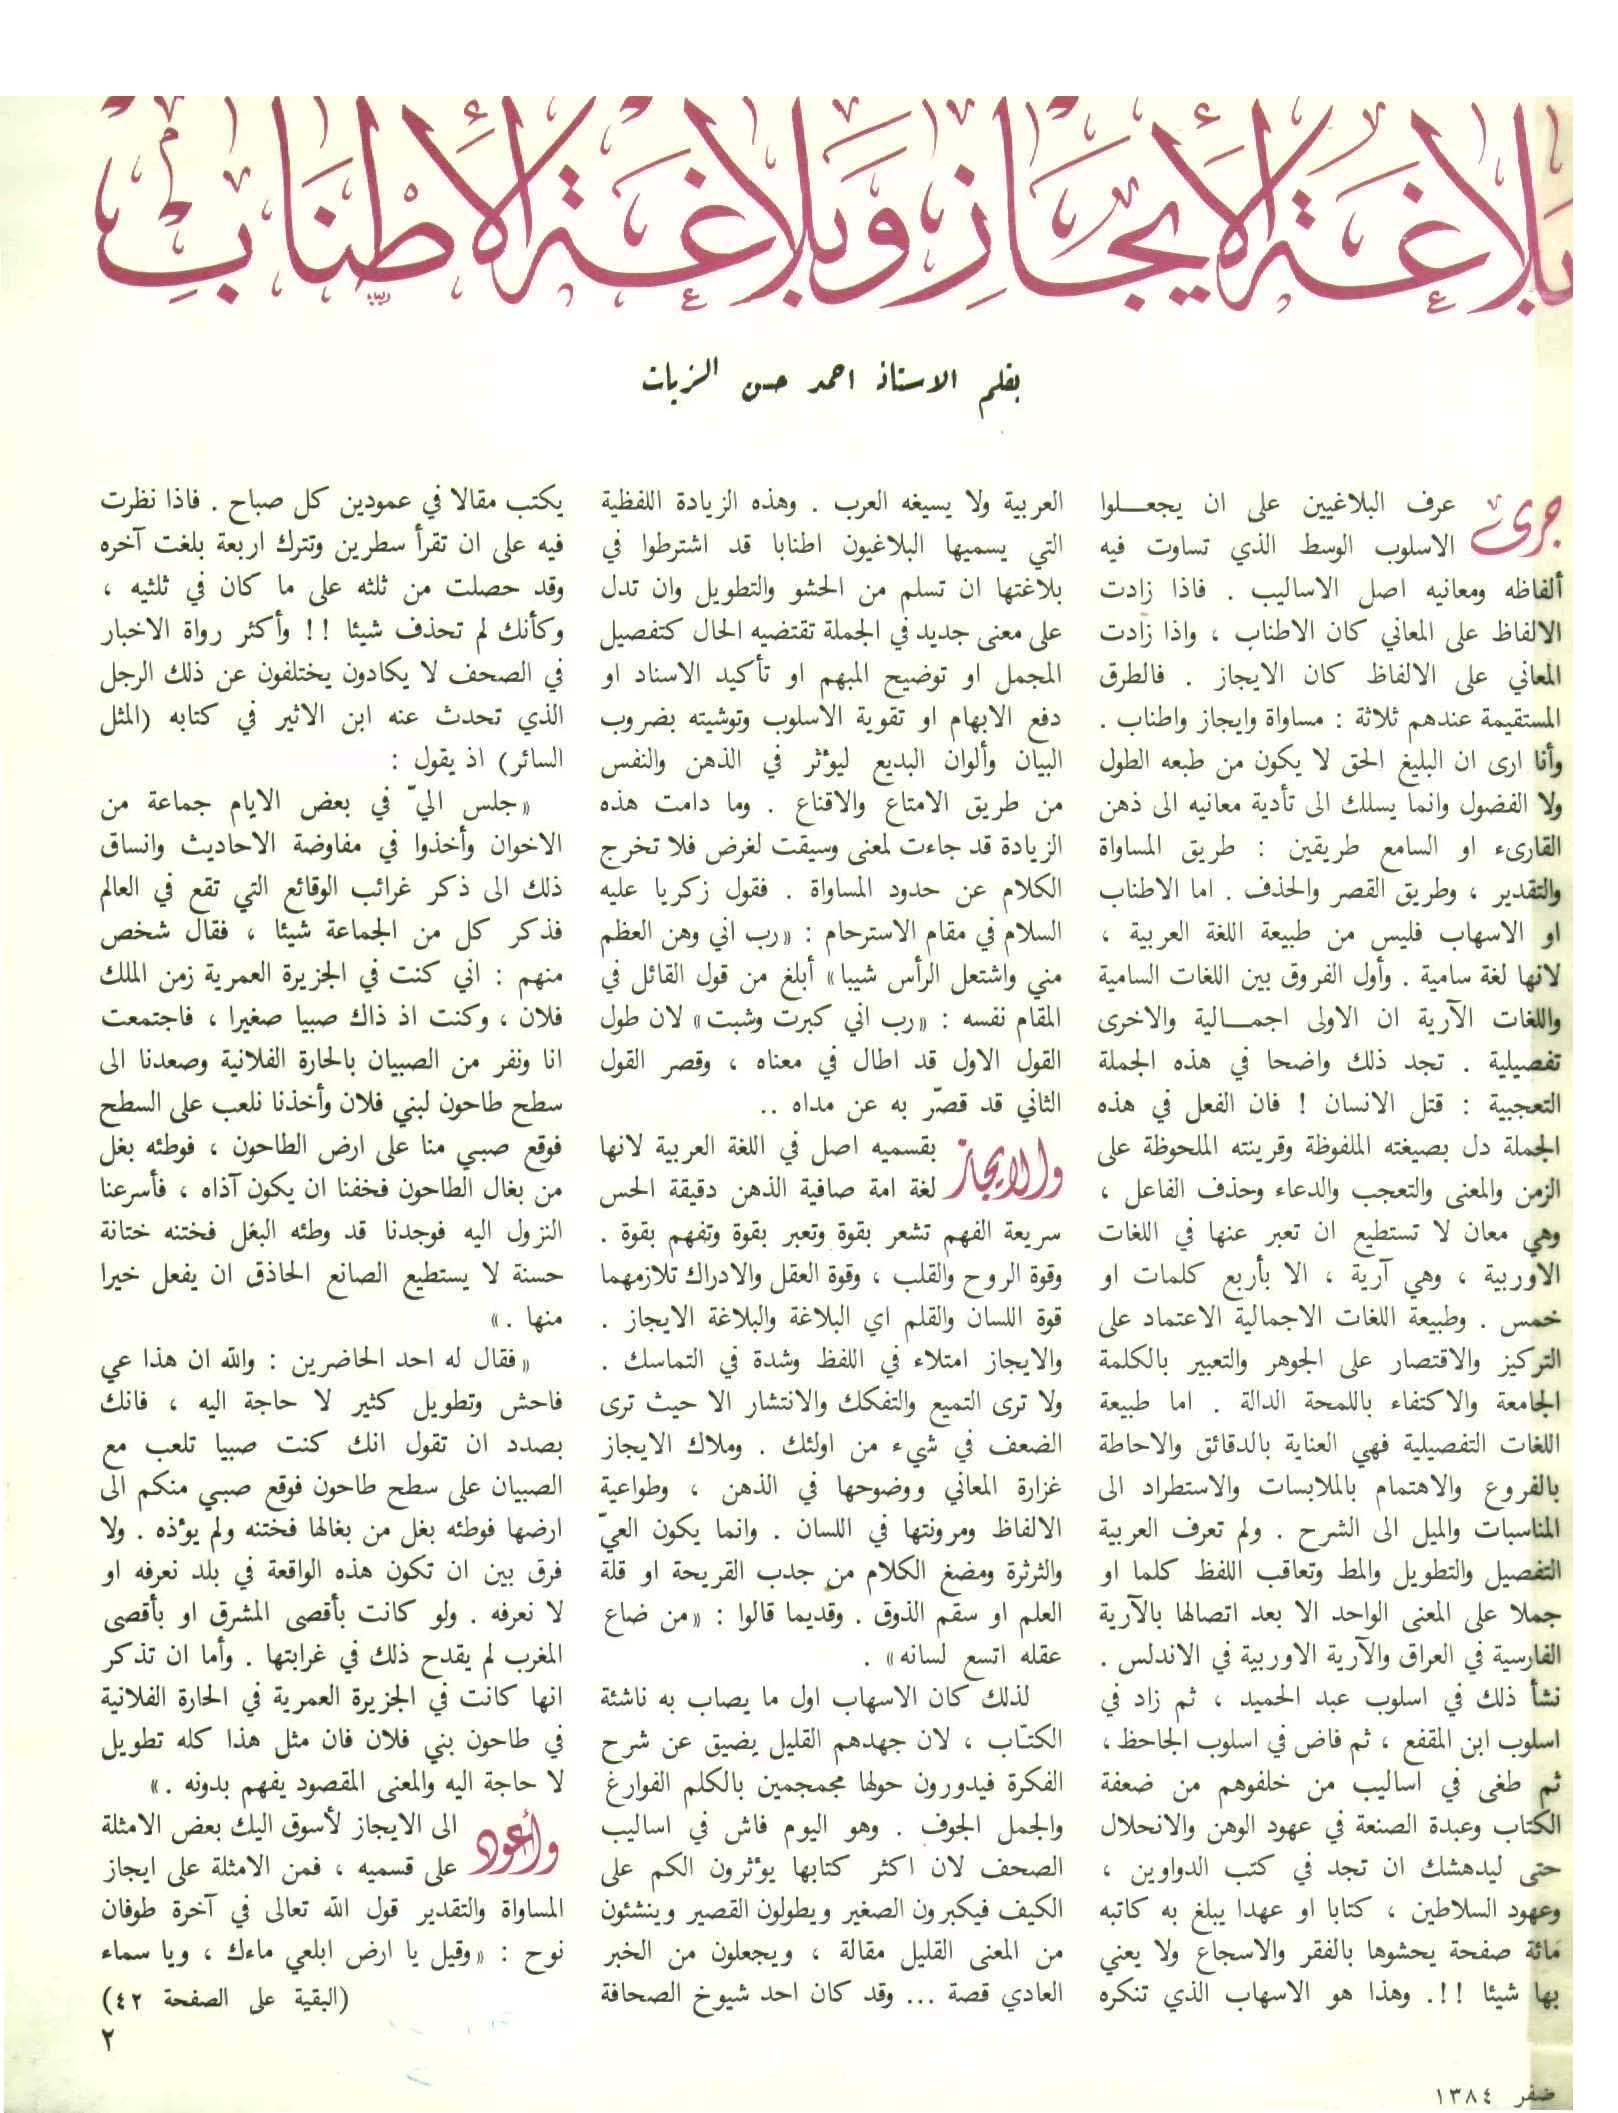 بلاغة الايجاز وبلاغة الاطناب
بقلم الاستاذ احمد حسن الزيات
جرى عرف البلاغيين على ان يجعلوا
الاسلوب الوسط الذي تساوت فيه
ألفاظه ومعانيه اصل الاساليب . فاذا زادت
الالفاظ على المعاني كان الاطناب ، واذا زادت
المعاني على الالفاظ كان الايجاز . فالطرق
المستقيمة عندهم ثلاثة : مساواة وايجاز واطناب .
وأنا ارى ان البليغ الحق لا يكون من طبعه الطول
ولا الفضول وانما يسلك الى تأدية معانيه الى ذهن
القارىء او السامع طريقين : طريق المساواة
والتقدير ، وطريق القصر والحذف . اما الاطناب
او الاسهاب فليس من طبيعة اللغة العربية ،
لانها لغة سامية . وأول الفروق بين اللغات السامية
واللغات الآرية ان الاولى اجمالية والاخرى
تفصيلية . تجد ذلك واضحا في هذه الجملة
التعجبية : قتل الانسان ! فان الفعل في هذه
الجملة دل بصيغته الملفوظة وقرينته الملحوظة على
الزمن والمعنى والتعجب والدعاء وحذف الفاعل ،
وهي معان لا تستطيع ان تعبر عنها في اللغات
الاوربية ، وهي آرية ، الا بأربع كلمات او
خمس . وطبيعة اللغات الاجمالية الاعتماد على
التركيز والاقتصار على الجوهر والتعبير بالكلمة
الجامعة والاكتفاء باللمحة الدالة . اما طبيعة
اللغات التفصيلية فهي العناية بالدقائق والاحاطة
بالفروع والاهتمام بالملابسات والاستطراد الى
المناسبات والميل الى الشرح . ولم تعرف العربية
التفصيل والتطويل والمط وتعاقب اللفظ كلما او
جملا على المعنى الواحد الا بعد اتصالها بالآرية
الفارسية في العراق والآرية الاوربية في الاندلس .
نشأ ذلك في اسلوب عبد الحميد ، ثم زاد في
اسلوب ابن المقفع ، ثم فاض في اسلوب الجاحظ ،
ثم طغى في اساليب من خلفوهم من ضعفة
الكتاب وعبدة الصنعة في عهود الوهن والانحلال
حتى ليدهشك ان تجد في كتب الدواوين ،
وعهود السلاطين ، كتابا او عهدا يبلغ به كاتبه
مائة صفحة يحشوها بالفقر والاسجاع ولا يعني
بها شيئا !!. وهذا هو الاسهاب الذي تنكره
العربية ولا يسيغه العرب . وهذه الزيادة اللفظية
التي يسميها البلاغيون اطنابا قد اشترطوا في
بلاغتها ان تسلم من الحشو والتطويل وان تدل
على معنى جديد في الجملة تقتضيه الحال كتفصيل
المجمل او توضيح المبهم او تأكيد الاسناد او
دفع الابهام او تقوية الاسلوب وتوشيته بضروب
البيان وألوان البديع ليؤثر في الذهن والنفس
من طريق الامتاع والاقناع . وما دامت هذه
الزيادة قد جاءت لمعنى وسيقت لغرض فلا تخرج
الكلام عن حدود المساواة . فقول زكريا عليه
السلام في مقام الاسترحام : «رب اني وهن العظم
مني واشتعل الرأس شيبا» أبلغ من قول القائل في
المقام نفسه : «رب اني كبرت وشبت» لان طول
القول الاول قد اطال في معناه ، وقصر القول
الثاني قد قصّر به عن مداه ..
والايجاز بقسميه اصل في اللغة العربية لانها
لغة امة صافية الذهن دقيقة الحس
سريعة الفهم تشعر بقوة وتعبر بقوة وتفهم بقوة .
وقوة الروح والقلب ، وقوة العقل والادراك تلازمهما
قوة اللسان والقلم اي البلاغة والبلاغة الايجاز .
والايجاز امتلاء في اللفظ وشدة في التماسك .
ولا ترى التميع والتفكك والانتشار الا حيث ترى
الضعف في شيء من اولئك . وملاك الايجاز
غزارة المعاني ووضوحها في الذهن ، وطواعية
الالفاظ ومرونتها في اللسان . وانما يكون العيّ
والثرثرة ومضغ الكلام من جدب القريحة او قلة
العلم او سقم الذوق . وقديما قالوا : «من ضاع
عقله اتسع لسانه» .
لذلك كان الاسهاب اول ما يصاب به ناشئة
الكتّاب ، لان جهدهم القليل يضيق عن شرح
الفكرة فيدورون حولها مجمجمين بالكلم الفوارغ
والجمل الجوف . وهو اليوم فاش في اساليب
الصحف لان اكثر كتابها يؤثرون الكم على
الكيف فيكبرون الصغير ويطولون القصير وينشئون
من المعنى القليل مقالة ، ويجعلون من الخبر
العادي قصة ... وقد كان احد شيوخ الصحافة
يكتب مقالا في عمودين كل صباح . فاذا نظرت
فيه على ان تقرأ سطرين وتترك اربعة بلغت آخره
وقد حصلت من ثلثه على ما كان في ثلثيه ،
وكأنك لم تحذف شيئا !! وأكثر رواة الاخبار
في الصحف لا يكادون يختلفون عن ذلك الرجل
الذي تحدث عنه ابن الاثير في كتابه (المثل
السائر) اذ يقول :
«جلس اليّ في بعض الايام جماعة من
الاخوان وأخذوا في مفاوضة الاحاديث وانساق
ذلك الى ذكر غرائب الوقائع التي تقع في العالم
فذكر كل من الجماعة شيئا ، فقال شخص
منهم : اني كنت في الجزيرة العمرية زمن الملك
فلان ، وكنت اذ ذاك صبيا صغيرا ، فاجتمعت
انا ونفر من الصبيان بالحارة الفلانية وصعدنا الى
سطح طاحون لبني فلان وأخذنا نلعب على السطح
فوقع صبي منا على ارض الطاحون ، فوطئه بغل
من بغال الطاحون فخفنا ان يكون آذاه ، فأسرعنا
النزول اليه فوجدنا قد وطئه البغل فختنه ختانة
حسنة لا يستطيع الصانع الحاذق ان يفعل خيرا
منها .»
«فقال له احد الحاضرين : والله ان هذا عي
فاحش وتطويل كثير لا حاجة اليه ، فانك
بصدد ان تقول انك كنت صبيا تلعب مع
الصبيان على سطح طاحون فوقع صبي منكم الى
ارضها فوطئه بغل من بغالها فختنه ولم يؤذه . ولا
فرق بين ان تكون هذه الواقعة في بلد نعرفه او
لا نعرفه . ولو كانت بأقصى المشرق او بأقصى
المغرب لم يقدح ذلك في غرابتها . وأما ان تذكر
انها كانت في الجزيرة العمرية في الحارة الفلانية
في طاحون بني فلان فان مثل هذا كله تطويل
لا حاجة اليه والمعنى المقصود يفهم بدونه .»
وأعود الى الايجاز لأسوق اليك بعض الامثلة
على قسميه ، فمن الامثلة على ايجاز
المساواة والتقدير قول الله تعالى في آخرة طوفان
نوح : «وقيل يا ارض ابلعي ماءك ، ويا سماء
(البقية على الصفحة ٤٢)
٢
صفر ١٣٨٤